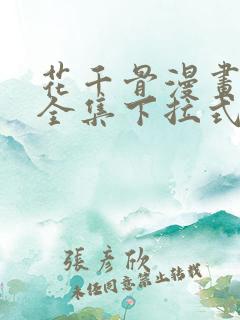 花千骨漫畫
全集下拉式
張彥欣
未经同意禁止转载